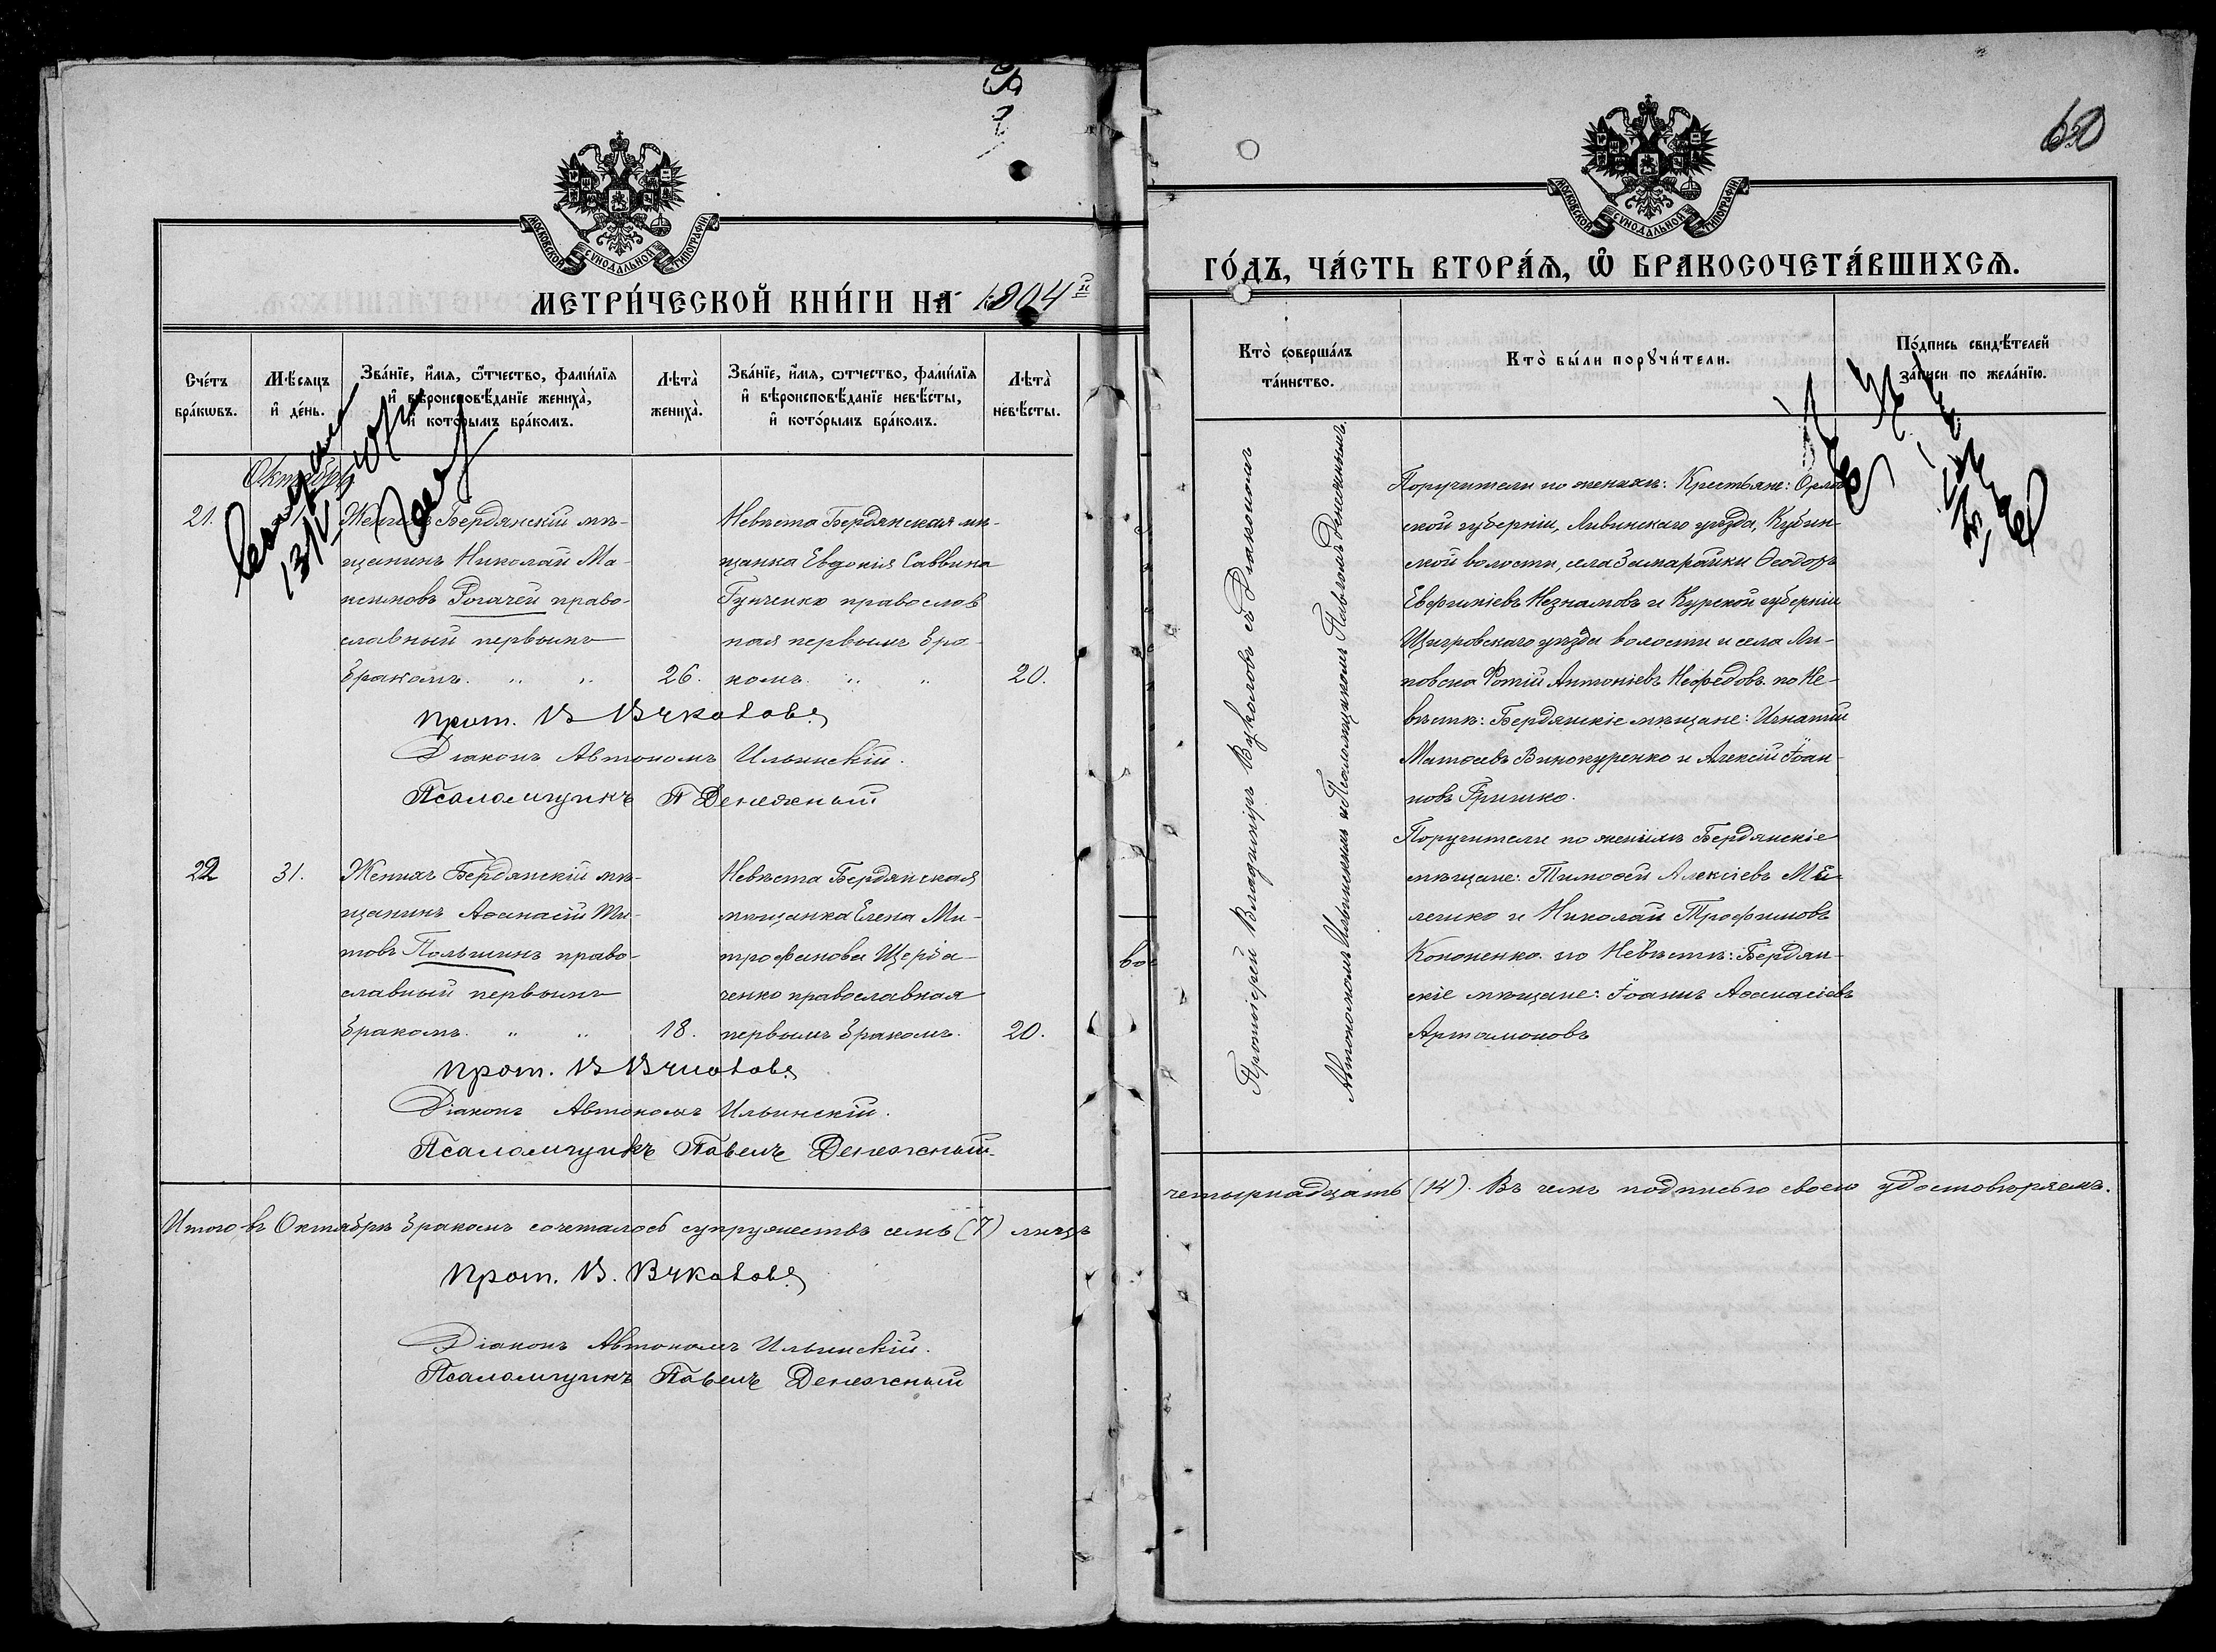 60
МОСКОВСКОЙ СѴНОДАЛЬНОЙ ТИПОГРАФІИ.
МЕТРИ́ЧЕСКОЙ КНИ́ГИ НА 1904й
Сче́тъ бра́кѡвъ.
Мѣ́сяцъ и҆ де́нь.
Зва́нїе, и҆́мя, ѻ҆́тчество, фами́лїя
и҆ вѣроисповѣ́данїе жениха̀,
и҆ кото́рымъ бра́комъ.
Лѣта̀ жениха̀.
Зва́нїе, и҆́мя, ѻтчество, фами́лїя
и҆ вѣроисповѣ́данїе невѣ́сты,
и҆ кото́рымъ бра́комъ.
Лѣта̀ невѣ́сты.
Октябрь
21.
Женихъ Бердянскій мѣ-
щанинъ Николай Ма-
ксимовъ Рогачей право-
славный первымъ
бракомъ. " "
26.
Невѣста Бердянская мѣ-
щанка Евдокія Саввина
Гунченко православ
ная первымъ бра-
комъ. " "
20.
Прот. В Вуколовъ
Діаконъ Автономъ Ильинскій.
Псаломщикъ П Денежный
22
31.
Женихъ Бердянскій мѣ-
щанинъ Аѳанасій Ти-
товъ Польшинъ право-
славный первымъ
бракомъ. " "
18.
Невѣста Бердянская
мѣщанка Елена Ми-
трофанова Щерба-
ченко православная
первымъ бракомъ.
20.
Прот. В Вуколовъ
Діаконъ Автономъ Ильинскій.
Псаломщикъ Павелъ Денежный
Итого въ Октябрѣ бракомъ сочеталось супружествъ семь (7) лицъ
Прот. В. Вуколовъ
Діаконъ Автономъ Ильинскій.
Псаломщикъ Павелъ Денежный
МОСКОВСКОЙ СѴНОДАЛЬНОЙ ТИПОГРАФІИ.
ГО́ДЪ, ЧА́СТЬ ВТОРА́Ѧ, Ѡ҆ БРАКОСОЧЕТА́ВШИХСѦ.
Кто̀ соверша́лъ
та́инство.
Кто̀ бы́ли порꙋчи́тели.
По́дпись свидѣ́телей
за́писи по жела́нїю.
Протоіерей Владиміръ Вуколовъ съ Діакономъ
Автономомъ Ильинскимъ и Псаломщикомъ Павломъ Денежнымъ.
Поручители по женихѣ: Крестьяне: Орлов
ской губерніи, Ливинскаго уѣзда, Кубин-
ской волости, села Замарайки Ѳеодоръ
Евфиміевъ Незнамовъ и Курской губерніи
Щигровскаго уѣзда волости и села Ли-
повска Фотій Антоніевъ Нефедовъ. по Не-
вѣстѣ: Бердянскіе мѣщане: Игнатій
Матѳеевъ Винокуренко и Алексій Іоан-
новъ Гришко.
Поручители по женихѣ Бердянскіе
мѣщане: Тимоѳей Алексіевъ
и Николай Трофимовъ
Кононенко. по Невѣстѣ: Бердян-
скіе мѣщане: Іоаннъ Аѳанасіевъ
Артамоновъ
четырнадцать (14). Въ чемъ подписью своею удостовѣряемъ.